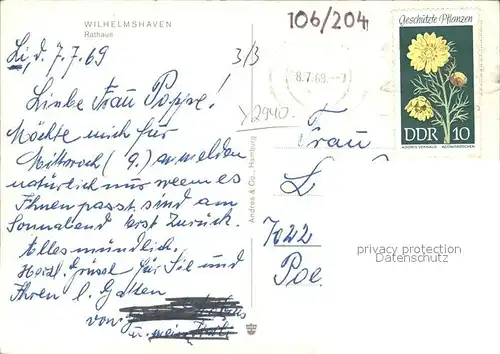 WILHELMSHAVEN
Rathaus
106/204
3/3
Li, d. 7.7.69
Liebe Frau Poppe!
Möchte mich für
Mittwoch (9.) anmelden
natürlich nur wenn es
Ihnen passt sind am
Sonnabend erst zurück.
Alles mündlich.
Herzl. Grüsse für Sie und
Ihren l. Gatten
von
u. mein
8.7.69
Geschützte Pflanzen
DDR 10
ADONIS VERNALIS ADONISRÖSCHEN
Andres & Co., Hamburg
Frau
L
7022
Poe
privacy protection
Datenschutz